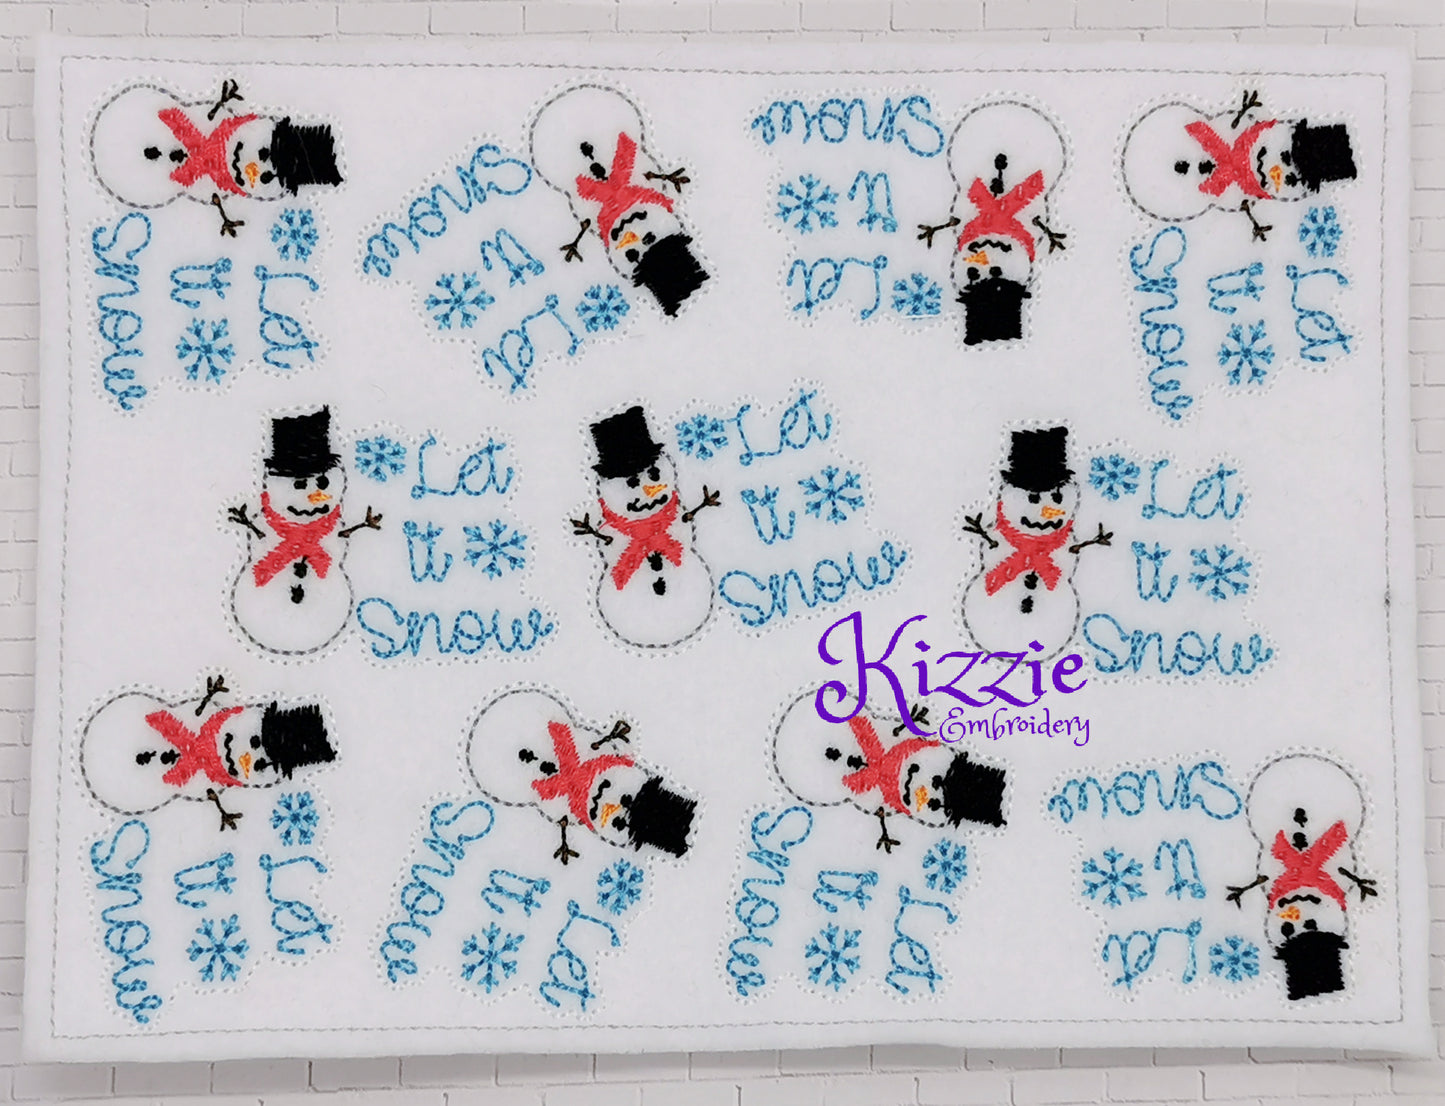 Let
It
Snow
Snow
It
Let
Snow
It
Let
Let
It
Snow
Let
It
Snow
Let
It
Snow
Let
It
Snow
Let
It
Snow
Let
It
Snow
Let
It
Snow
Snow
It
Let
Kizzie
Embroidery